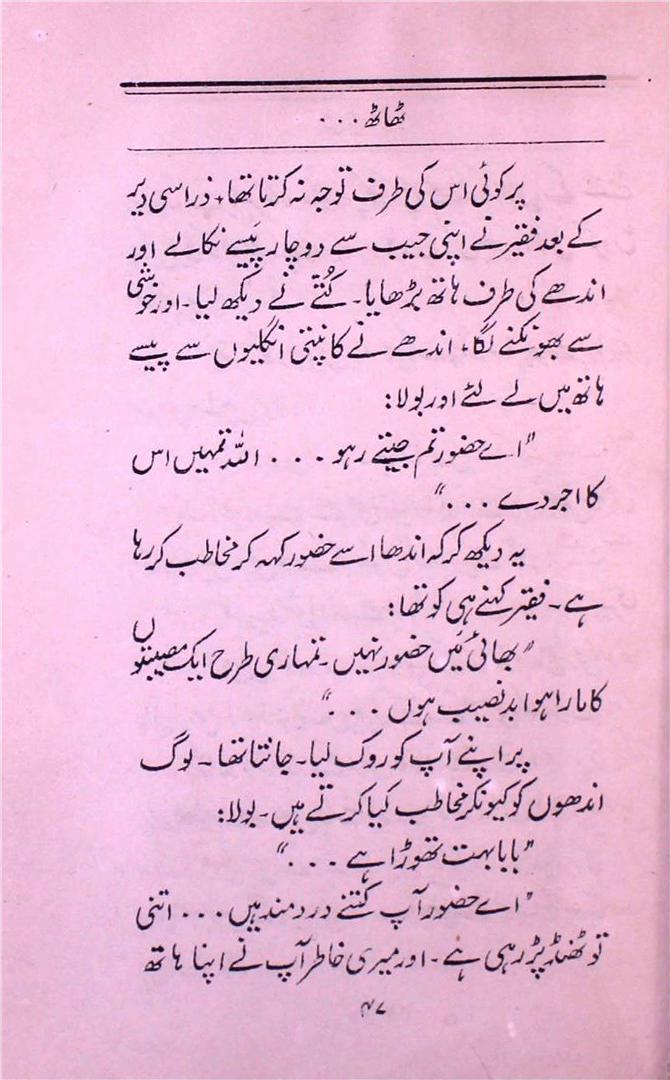 ٹھاٹھ ...
پر کوئی اس کی طرف توجہ نہ کرتا تھا، ذرا سی دیر
کے بعد فقیر نے اپنی جیب سے دو چار پَیسے نکالے اور
اندھے کی طرف ہاتھ بڑھایا۔ کُتّے نے دیکھ لیا۔ اور خوشی
سے بھونکنے لگا، اندھے نے کانپتی انگلیوں سے پیسے
ہاتھ میں لے لئے اور بولا:
"اے حضور تم جیتے رہو ... اللہ تمہیں اس
کا اجر دے ..."
یہ دیکھ کر کہ اندھا اسے حضور کہہ کر مخاطب کر رہا
ہے۔ فقیر کہنے ہی کو تھا:
"بھائی مَیں حضور نہیں۔ تمہاری طرح ایک مصیبتوں
کا مارا ہوا بدنصیب ہوں ..."
پر اپنے آپ کو روک لیا۔ جانتا تھا۔ لوگ
اندھوں کو کیونکر مخاطب کیا کرتے ہیں۔ بولا:
"بابا بہت تھوڑا ہے ..."
"اے حضور آپ کتنے دردمند ہیں ... اتنی
تو ٹھنڈ پڑ رہی ہے۔ اور میری خاطر آپ نے اپنا ہاتھ
۴۷